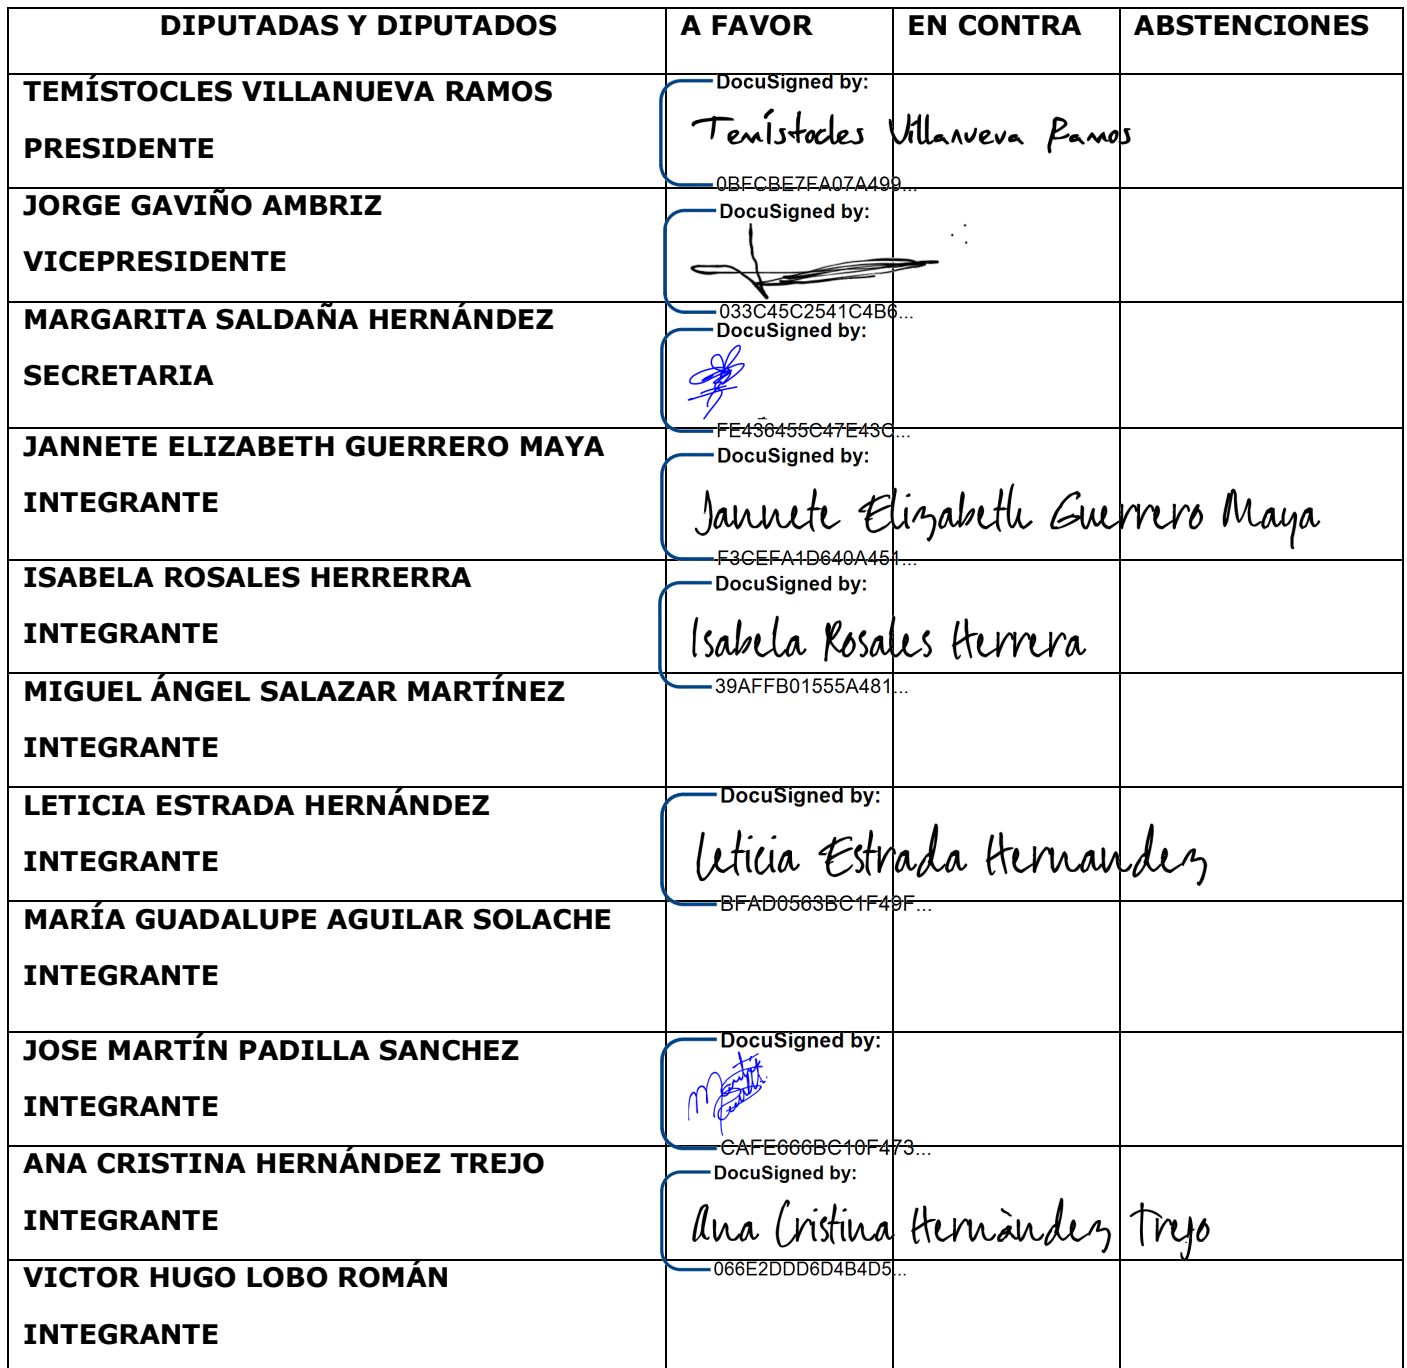 DIPUTADAS Y DIPUTADOS A FAVOR EN CONTRA ABSTENCIONES
TEMÍSTOCLES VILLANUEVA RAMOS
PRESIDENTE
DocuSigned by:
Temístocles Villanueva Ramos
0BFCBE7FA07A499...
JORGE GAVIÑO AMBRIZ
VICEPRESIDENTE
DocuSigned by:
033C45C2541C4B6...
MARGARITA SALDAÑA HERNÁNDEZ
SECRETARIA
DocuSigned by:
FE436455C47E43C...
JANNETE ELIZABETH GUERRERO MAYA
INTEGRANTE
DocuSigned by:
Jannete Elizabeth Guerrero Maya
F3CEFA1D640A451...
ISABELA ROSALES HERRERRA
INTEGRANTE
DocuSigned by:
Isabela Rosales Herrera
39AFFB01555A481...
MIGUEL ÁNGEL SALAZAR MARTÍNEZ
INTEGRANTE
LETICIA ESTRADA HERNÁNDEZ
INTEGRANTE
DocuSigned by:
Leticia Estrada Hernandez
BFAD0563BC1F49F...
MARÍA GUADALUPE AGUILAR SOLACHE
INTEGRANTE
JOSE MARTÍN PADILLA SANCHEZ
INTEGRANTE
DocuSigned by:
CAFE666BC10F473...
ANA CRISTINA HERNÁNDEZ TREJO
INTEGRANTE
DocuSigned by:
Ana Cristina Hernàndez Trejo
066E2DDD6D4B4D5...
VICTOR HUGO LOBO ROMÁN
INTEGRANTE